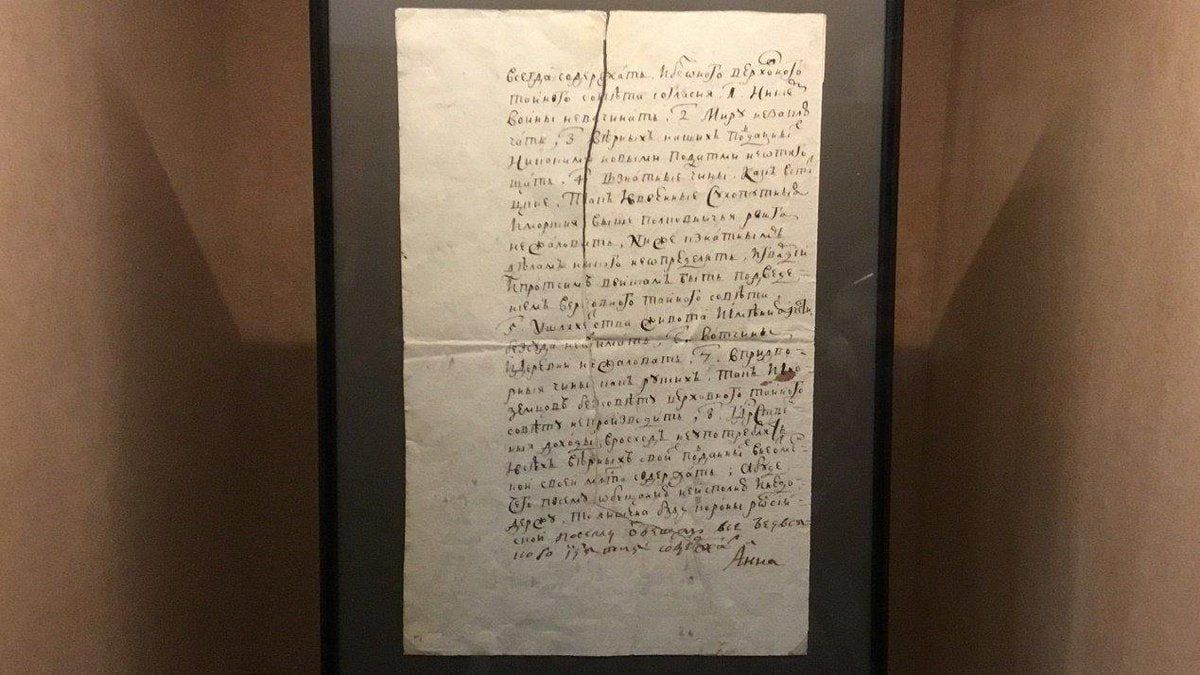 всегда содержать, и без оного верховного
тайного совѣта согласия 1. Ни с кем
воины невсчинать, 2 Миру незаклю
чать, 3 Вѣрныхъ нашихъ подданных
никакими новыми податми неотяго
щать, 4 Взнатные чины, какъ въ ста
цкие, такъ и военные сухопутные
и морские, выше полковничья ранга
не жаловать, ниже кзнатнымъ
дѣлам никого неопределять, и гвардии
и протчимъ полкам быть подведе
нием верховного тайного совѣта
5. У шляхетства живота и имѣния и чести
без суда неотимать, 6. вотчины,
и деревни не жаловать, 7. впридво-
рные чины как руских, так и ино
земцовъ безсовѣту верховного тайного
совѣту непроизводить, 8. Государствен
ные доходы врасходъ неупотреблять
и всѣхъ вѣрныхъ своих подданных в неотме
нной своей милости содержать, а буде
чего посему обещанию неисполню и недо
держу, то лишена буду короны росий
ской посему обещаю все безвся
кого изятия содержать
Анна